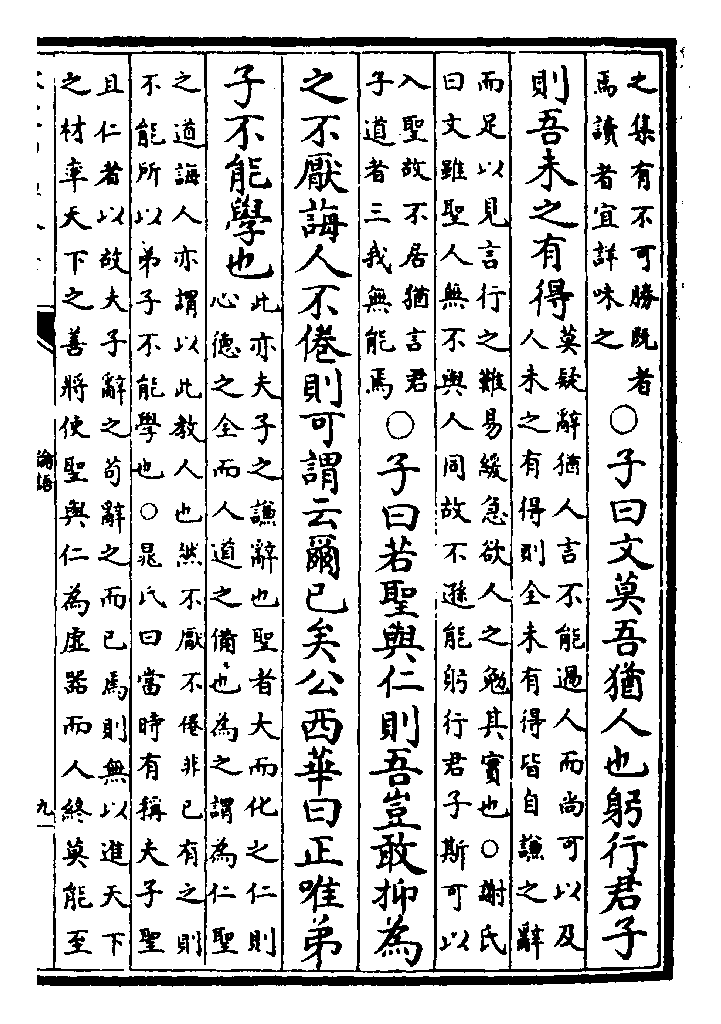 之集有不可勝既者
焉讀者宜詳味之
○子曰文莫吾猶人也躬行君子
則吾未之有得
莫疑辭猶人言不能過人而尚可以及
人未之有得則全未有得皆自謙之辭
而足以見言行之難易緩急欲人之勉其實也○謝氏
曰文雖聖人無不與人同故不遜能躬行君子斯可以
入聖故不居猶言君
子道者三我無能焉
○子曰若聖與仁則吾豈敢抑為
之不厭誨人不倦則可謂云爾已矣公西華曰正唯弟
子不能學也
此亦夫子之謙辭也聖者大而化之仁則
心德之全而人道之備也為之謂為仁聖
之道誨人亦謂以此教人也然不厭不倦非已有之則
不能所以弟子不能學也○晁氏曰當時有稱夫子聖
且仁者以故夫子辭之苟辭之而已焉則無以進天下
之材率天下之善將使聖與仁為虛器而人終莫能至
論語
九